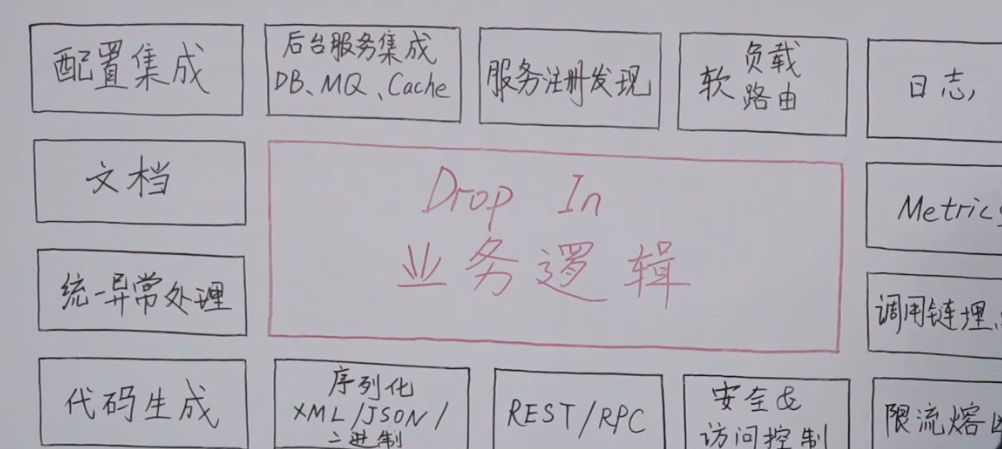 配置集成
后台服务集成
DB、MQ、Cache
服务注册发现
负载
软路由
日志
文档
Drop In
业务逻辑
Metrics
统一异常处理
调用链埋
代码生成
序列化
XML/JSON/
二进制
REST/RPC
安全&
访问控制
限流熔